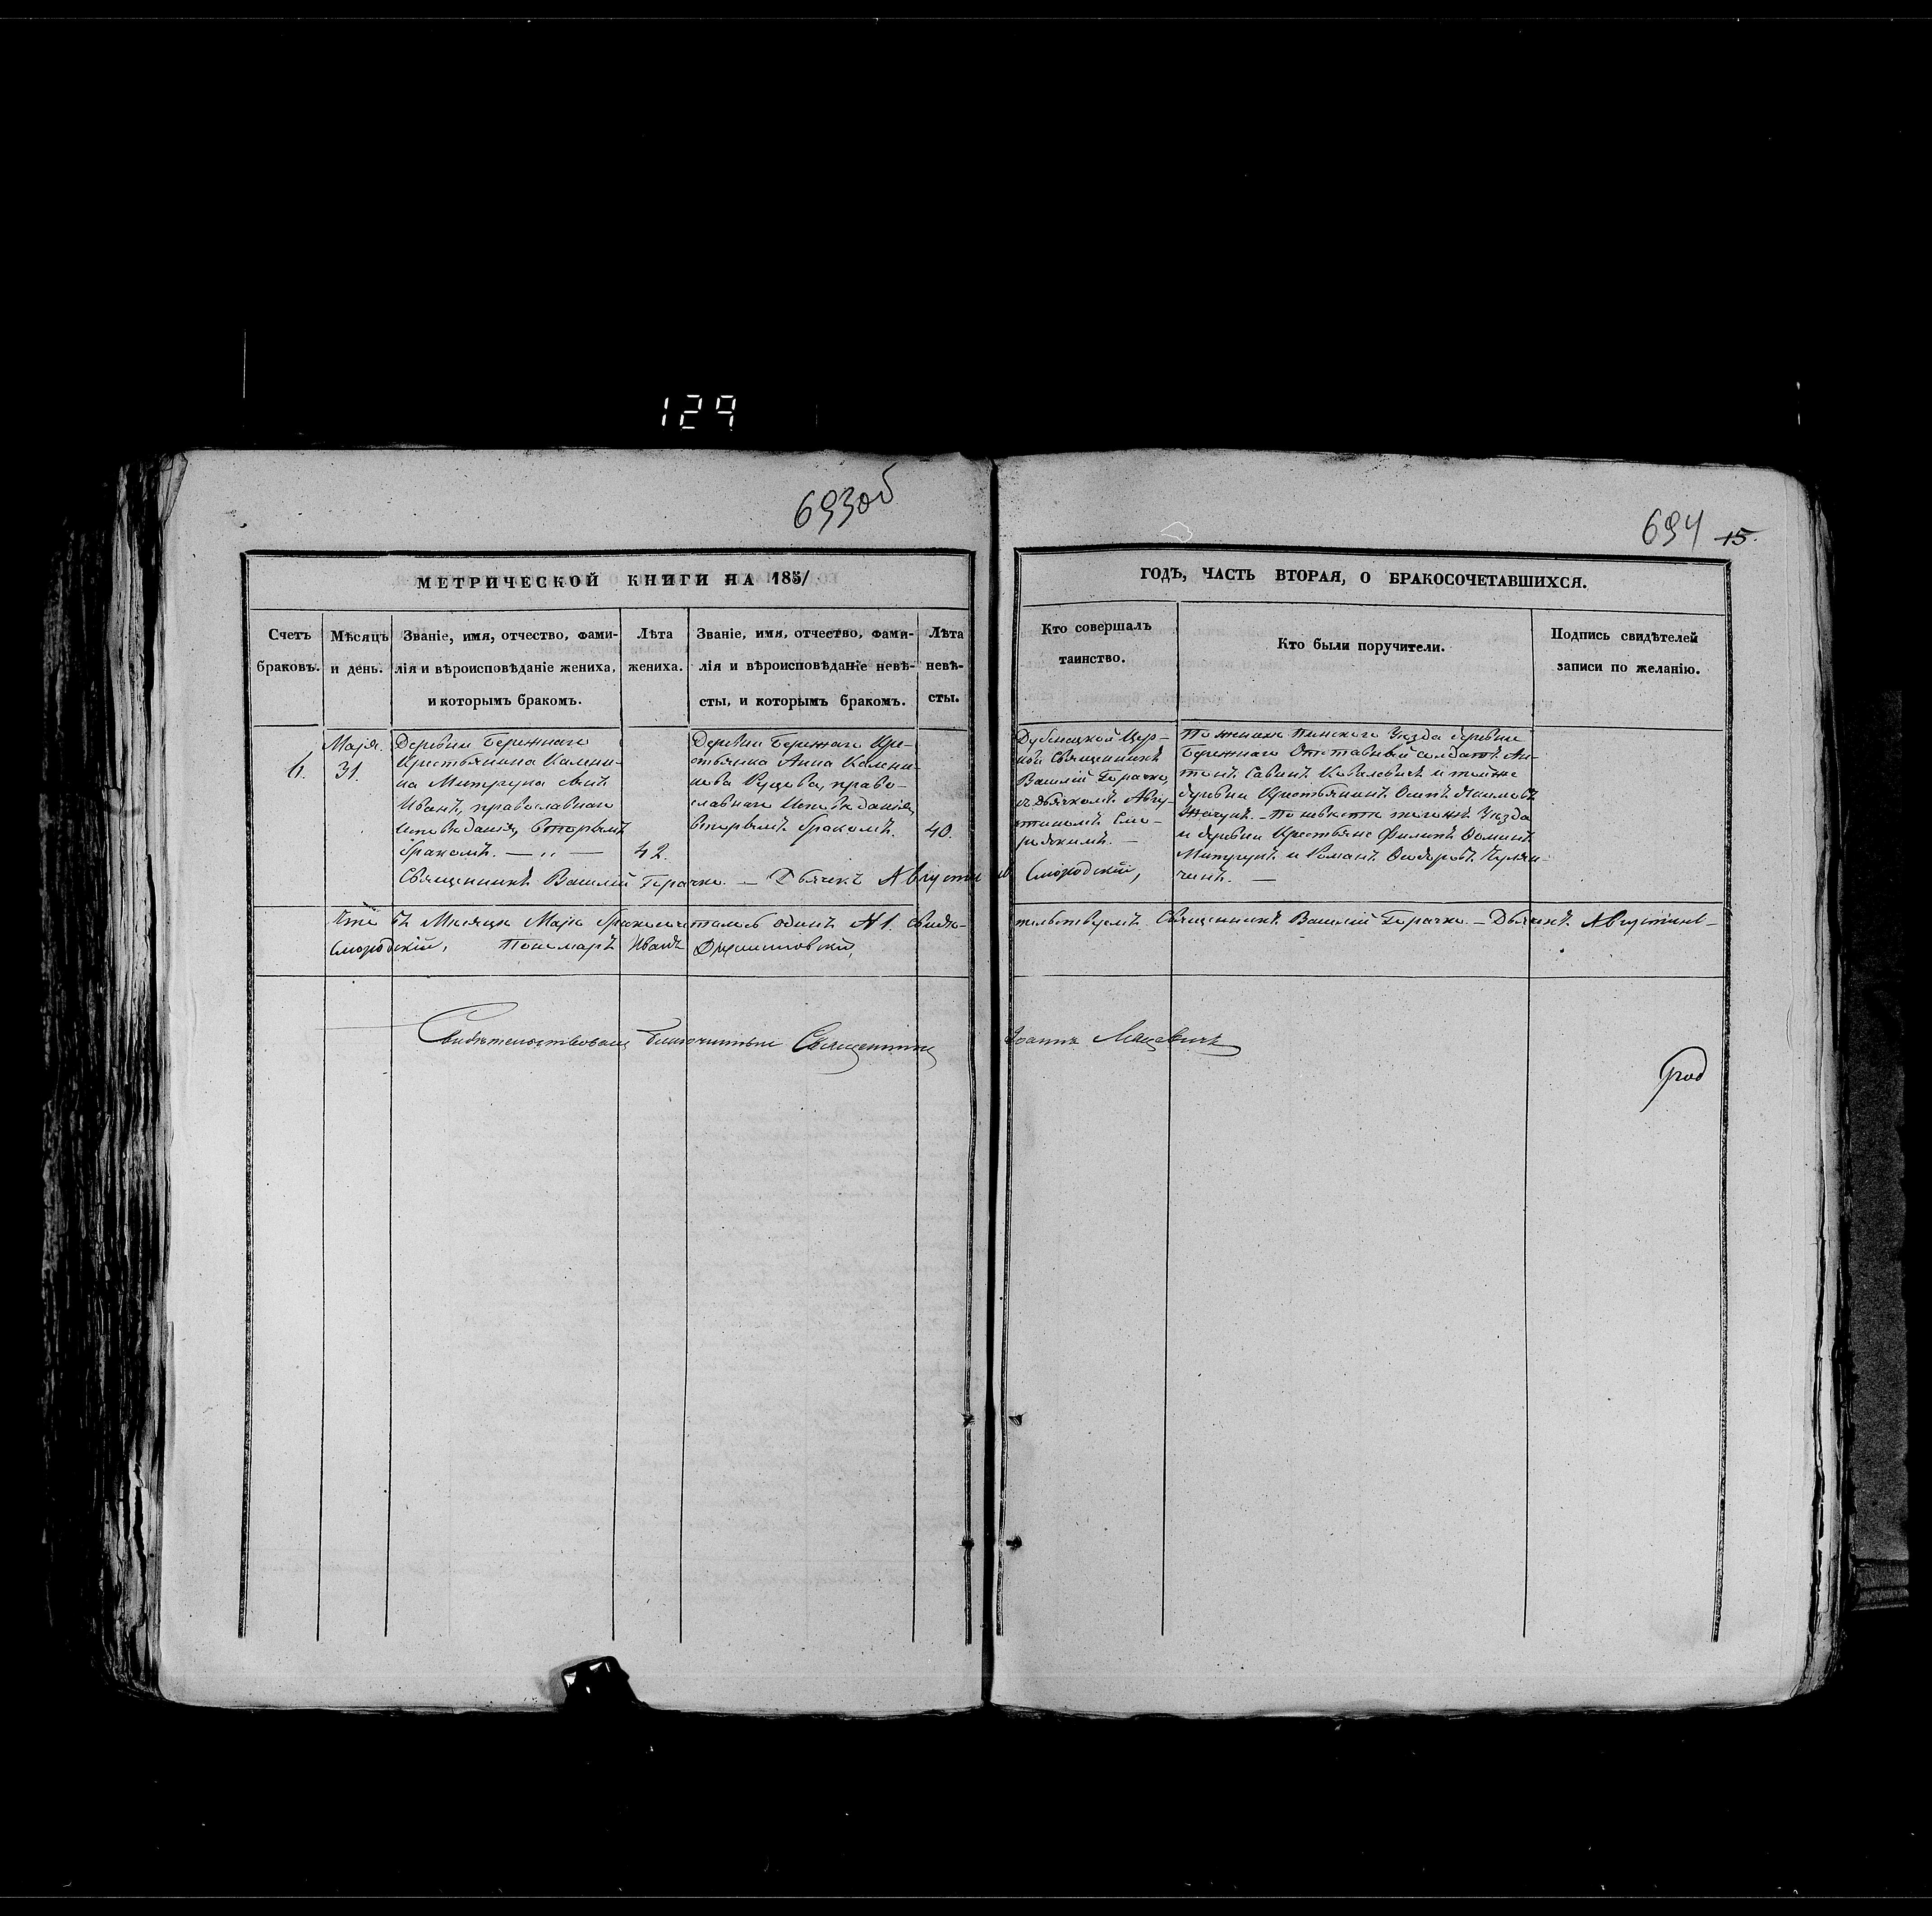 129
693об
694 15.
МЕТРИЧЕСКОЙ КНИГИ НА 1851
ГОДЪ, ЧАСТЬ ВТОРАЯ, О БРАКОСОЧЕТАВШИХСЯ.
Счетъ браковъ.
Мѣсяцъ и день.
Званіе, имя, отчество, фами-
лія и вѣроисповѣданіе жениха,
и которымъ бракомъ.
Лѣта
жениха.
Званіе, имя, отчество, фами-
лія и вѣроисповѣданіе невѣ-
сты, и которымъ бракомъ.
Лѣта
невѣ-
сты.
Кто совершалъ
таинство.
Кто были поручители.
Подпись свидѣтелей
записи по желанію.
Маія.
31.
Деревни Бережнаго
Крестьянина
на Митруна сынъ
Иванъ, православнаго
исповѣданія, вторымъ
бракомъ. — „ —
42.
Деревни Бережнаго Кре-
стьянка Анна
право-
славнаго исповѣданія,
вторымъ бракомъ.
40.
Дубницкой Цер-
кви Священникъ
Василій Герачко,
съ Дьячкомъ Авгу-
стиномъ Смо-
родскимъ. —
По женихѣ Пинскаго Уѣзда деревни
Бережнаго Отставный солдатъ Ан-
тонъ Савинъ Ковалевичъ и тойже
деревни Крестьянинъ Осипъ
По невѣстѣ тогожъ Уѣзда
и деревни Крестьяне Филипъ Фоминъ
и Романъ Федоровъ
Священникъ Василій Герачко. — Дьячекъ Августинъ Смородскій,
Что въ Мѣсяцѣ Маіѣ одинъ №1. свидѣ-
тельствуемъ Священникъ Василій Герачко. — Дьячекъ Августинъ —
Смородскій, Пономарь Иванъ
Свидѣтельствовалъ Благочинный Священникъ Іоаннъ